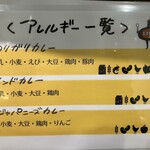 <アレルギー一覧>
りガリカレー
乳・小麦・えび・大豆・鶏肉・豚肉
ンドカレー
乳・小麦・大豆・鶏肉
ジャパニーズカレー
小麦・大豆・鶏肉・りんご